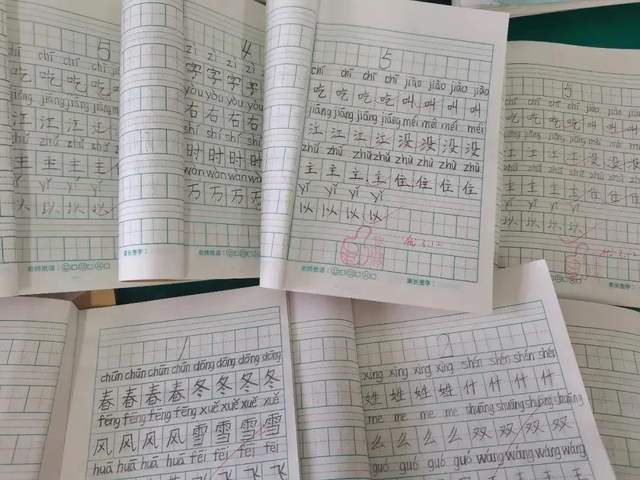 5
chī
吃 吃 吃 吃
jiāng jiāng jiāng
江 江 江 江
zhù zhǔ zhǔ
主 主 主 主
yǐ yǐ
以 以 以
老师批语：
4
zì zì zì zì
字 字 字 字
yòu yòu yòu yòu
右 右 右 右
shí shí shí shí
时 时 时 时
wàn wàn wàn wàn
万 万 万 万
家长签字：
老师批语：
5
chī chī chī chī jiào jiào jiào jiào
吃 吃 吃 吃 叫 叫 叫 叫
jiāng jiāng jiāng jiāng méi méi méi méi
江 江 江 江 没 没 没 没
zhǔ zhǔ zhǔ zhǔ zhù zhù zhù zhù
主 主 主 主 住 住 住 住
yǐ yǐ yǐ yǐ
以 以 以 以
老师批语：
家长签字：
5
chī chī chī jiào jiào jiào
吃 吃 吃 叫 叫 叫
江 江 江 没 没 没
主 主 主 住 住 住
以 以 以 以
1
chūn chūn chūn chūn dōng dōng dōng dōng
春 春 春 春 冬 冬 冬 冬
fēng fēng fēng fēng xuě xuě xuě xuě
风 风 风 风 雪 雪 雪 雪
huā huā huā huā fēi fēi fēi fēi
飞 飞 飞
2
xìng xìng xìng xìng shén shén shén shén
姓 姓 姓 姓 什 什 什 什
me me me me shuāng shuāng shuāng shuāng
么 么 么 么 双 双 双 双
guó guó guó guó wáng wáng wáng wáng